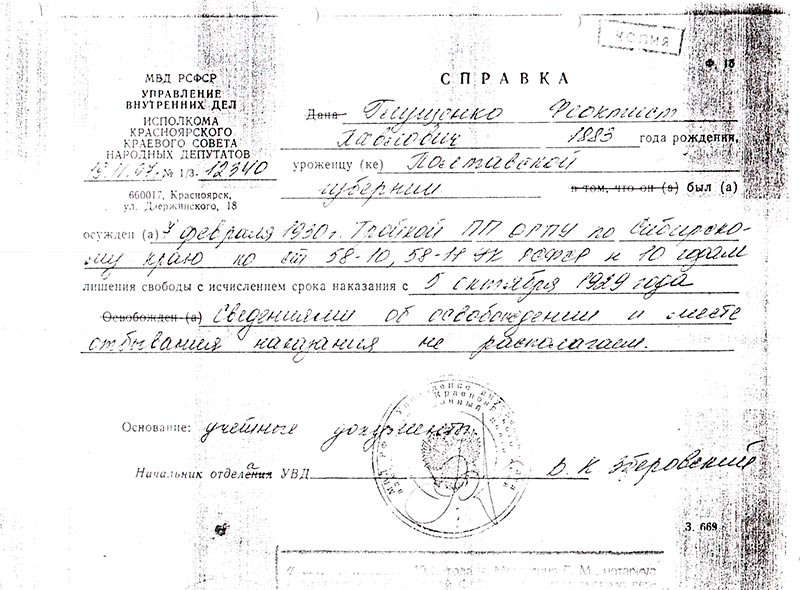 КОПИЯ
Ф. 15
МВД РСФСР
УПРАВЛЕНИЕ
ВНУТРЕННИХ ДЕЛ
ИСПОЛКОМА
КРАСНОЯРСКОГО
КРАЕВОГО СОВЕТА
НАРОДНЫХ ДЕПУТАТОВ
№ 1/3- 12340
660017, Красноярск,
ул. Дзержинского, 18
СПРАВКА
Дана Глущенко Феоктист
Павлович 1883 года рождения,
уроженцу (ке) Полтавской
губернии в том, что он (а) был (а)
осужден (а) 4 февраля 1930 г. Тройкой ПП ОГПУ по Сибирско-
му краю по ст 58-10, 58-11 УК РСФСР к 10 годам
лишения свободы с исчислением срока наказания с 5 октября 1929 года
Освобожден (а) Сведениями об освобождении и месте
отбывания наказания не располагаем.
Основание: учетные документы
Начальник отдела УВД В. К Зберовский
З. 669